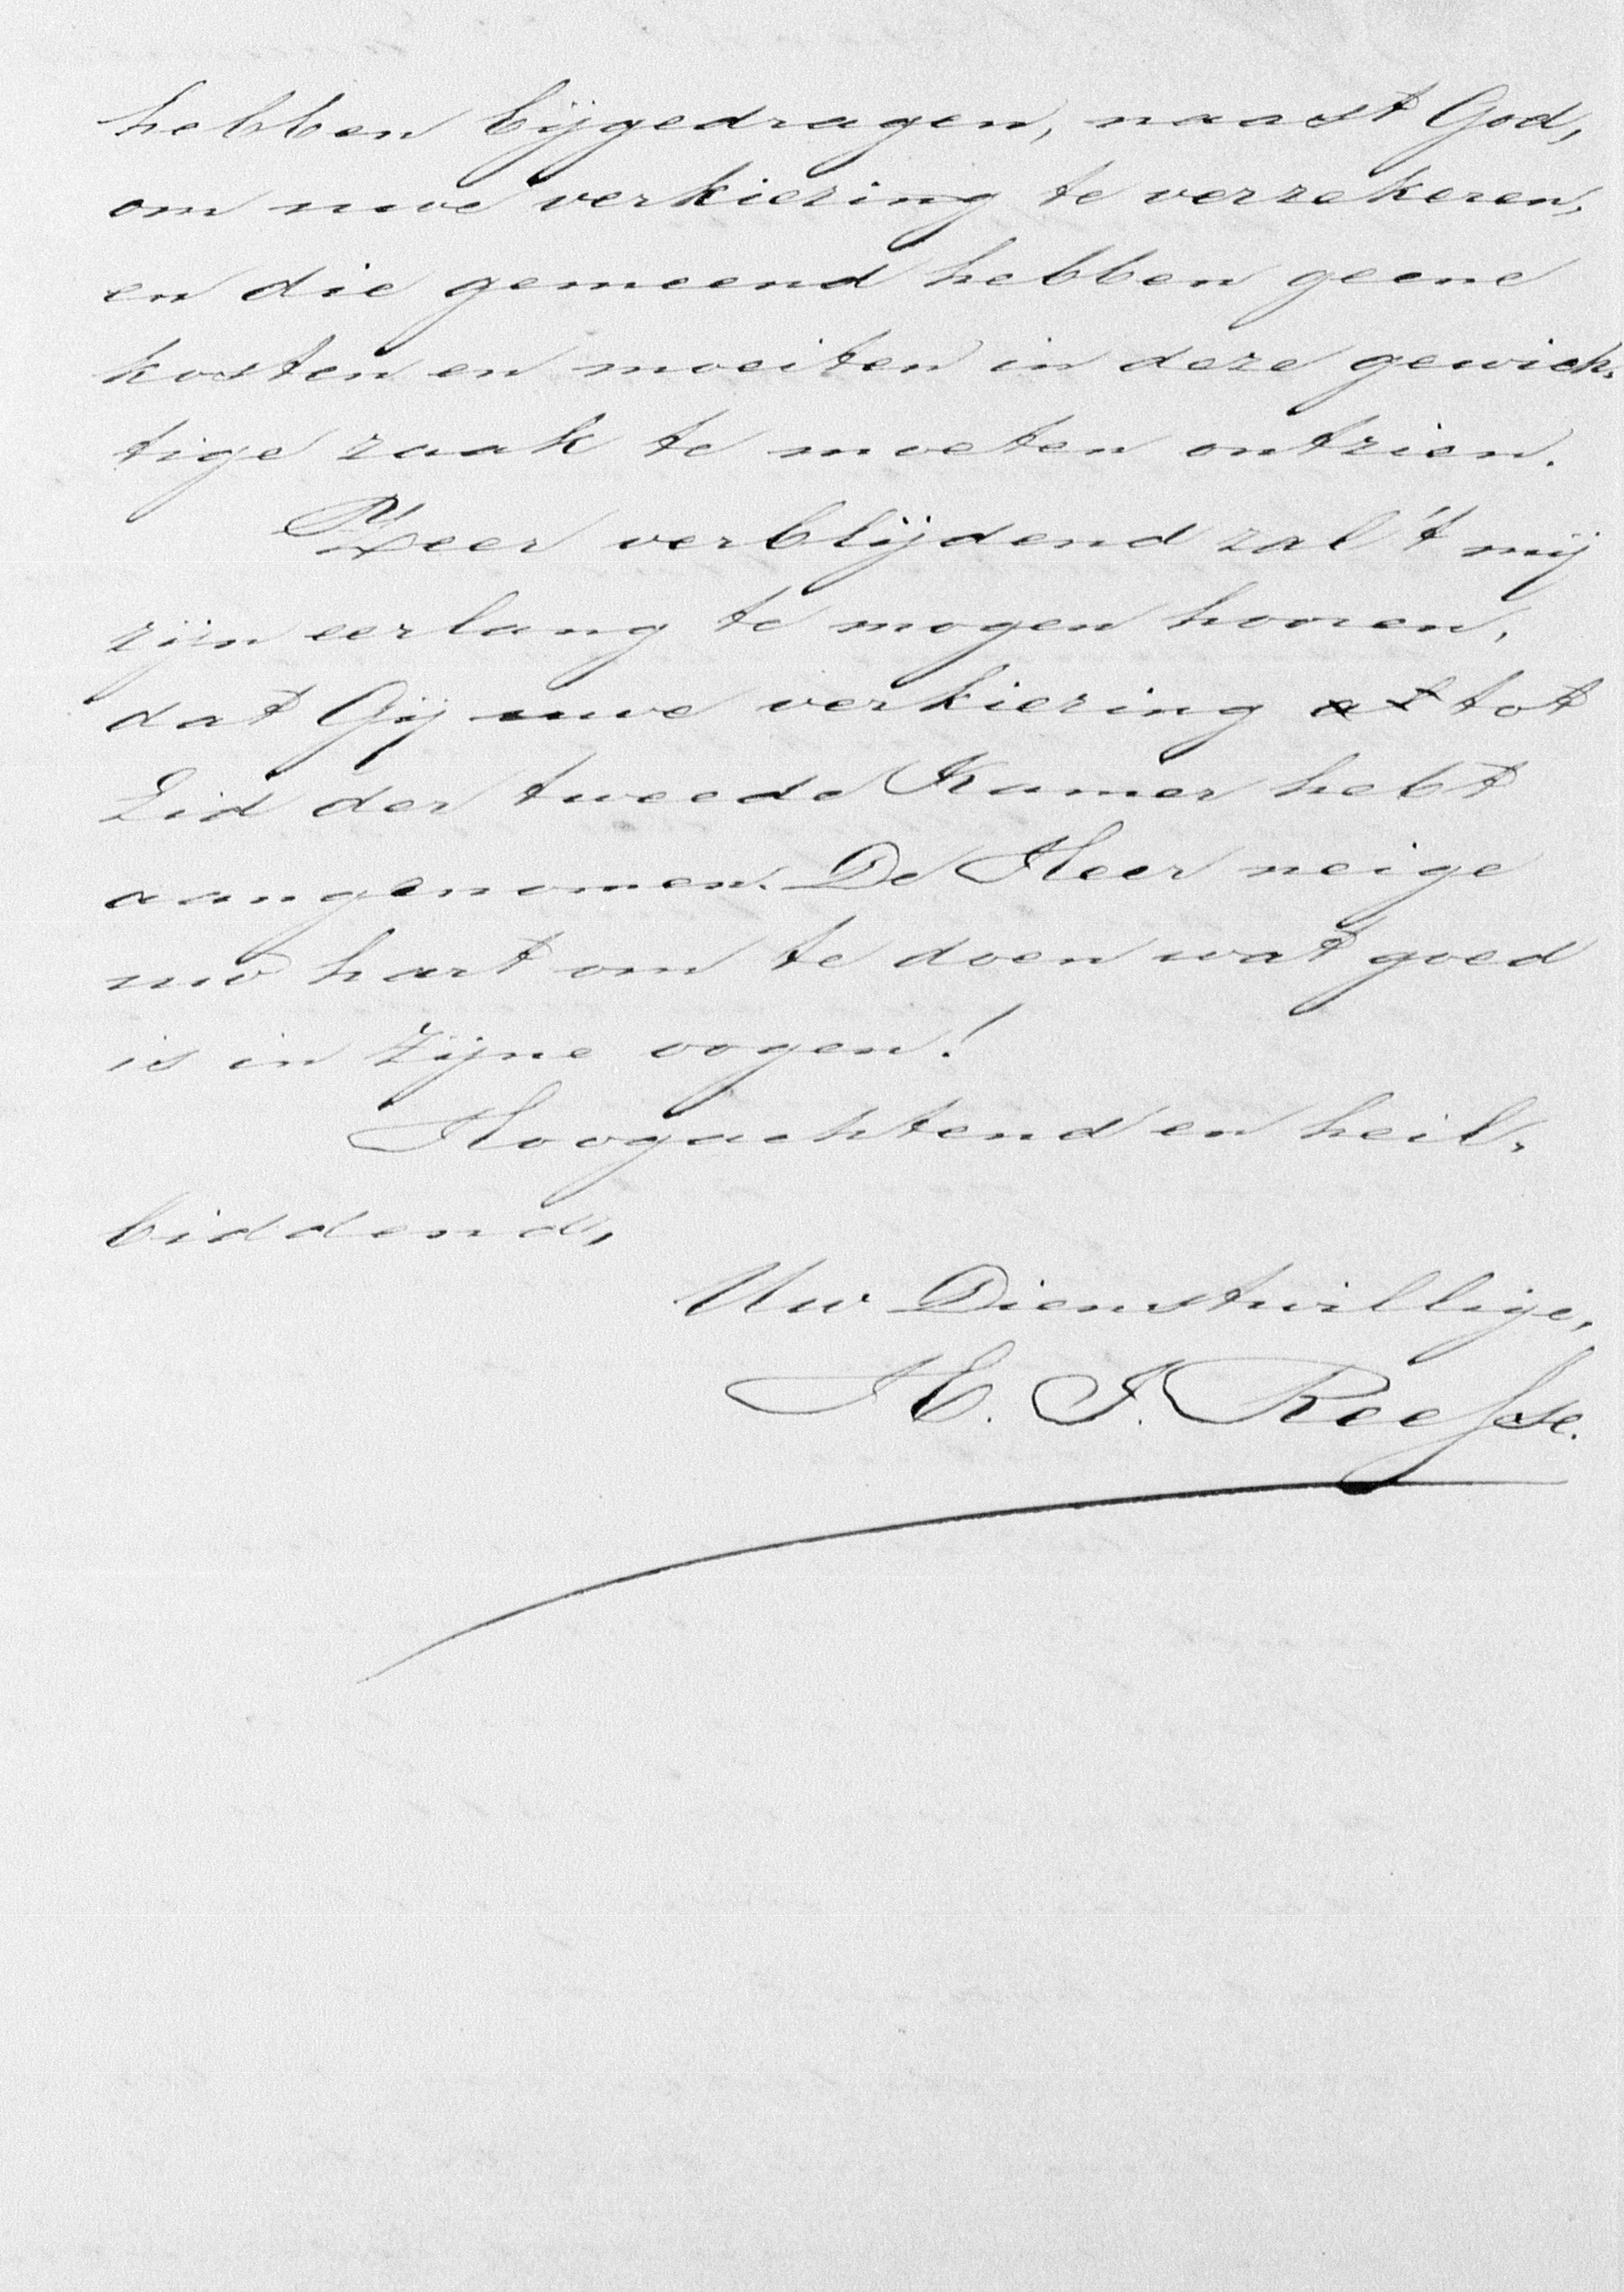 hebben bijgedragen, naast God,
om uwe verkiezing te verzekeren,
en die gemeend hebben geene
kosten en moeiten in deze gewich-
tige zaak te moeten ontzien.
Zeer verblijdend zal 't mij
zijn eerlang te mogen hooren,
dat Gij uwe verkiezing tot
Lid der tweede Kamer hebt
aangenomen. De Heer neige
uw hart om te doen wat goed
is in Zijne oogen!
Hoogachtend en heil-
biddend,
Uw Dienstwillige,
H. J. Reesse.